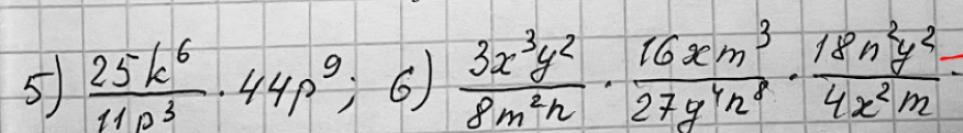 5) 25k⁶/11p³ · 44p⁹; 6) 3x³y²/8m²n · 16xm³/27y⁴n⁸ · 18n²y²/4x²m